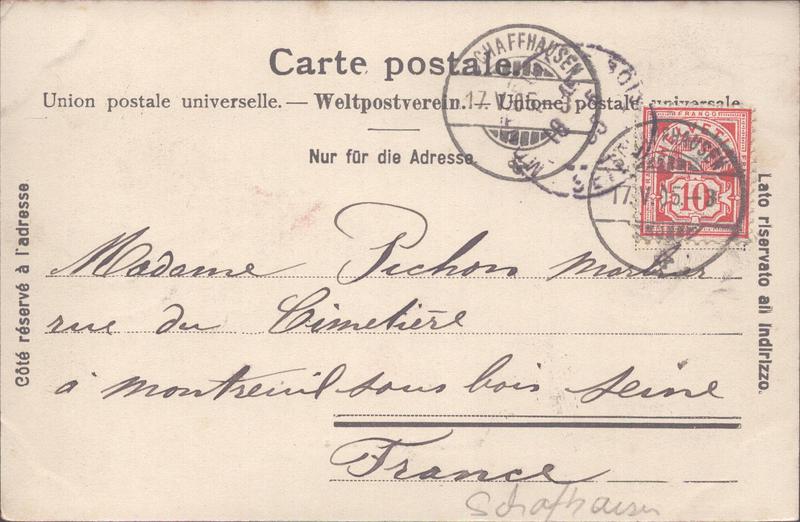 Carte postale.
Union postale universelle. — Weltpostverein. — Unione postale universale
Nur für die Adresse.
Côté réservé à l'adresse
Lato riservato all indirizzo.
SCHAFFHAUSEN
17.V.05
FRANCO
10
17.V.05.-8
Madame Pichon Mortier
rue du Cimetière
à Montreuil sous bois Seine
France
Schafhausen